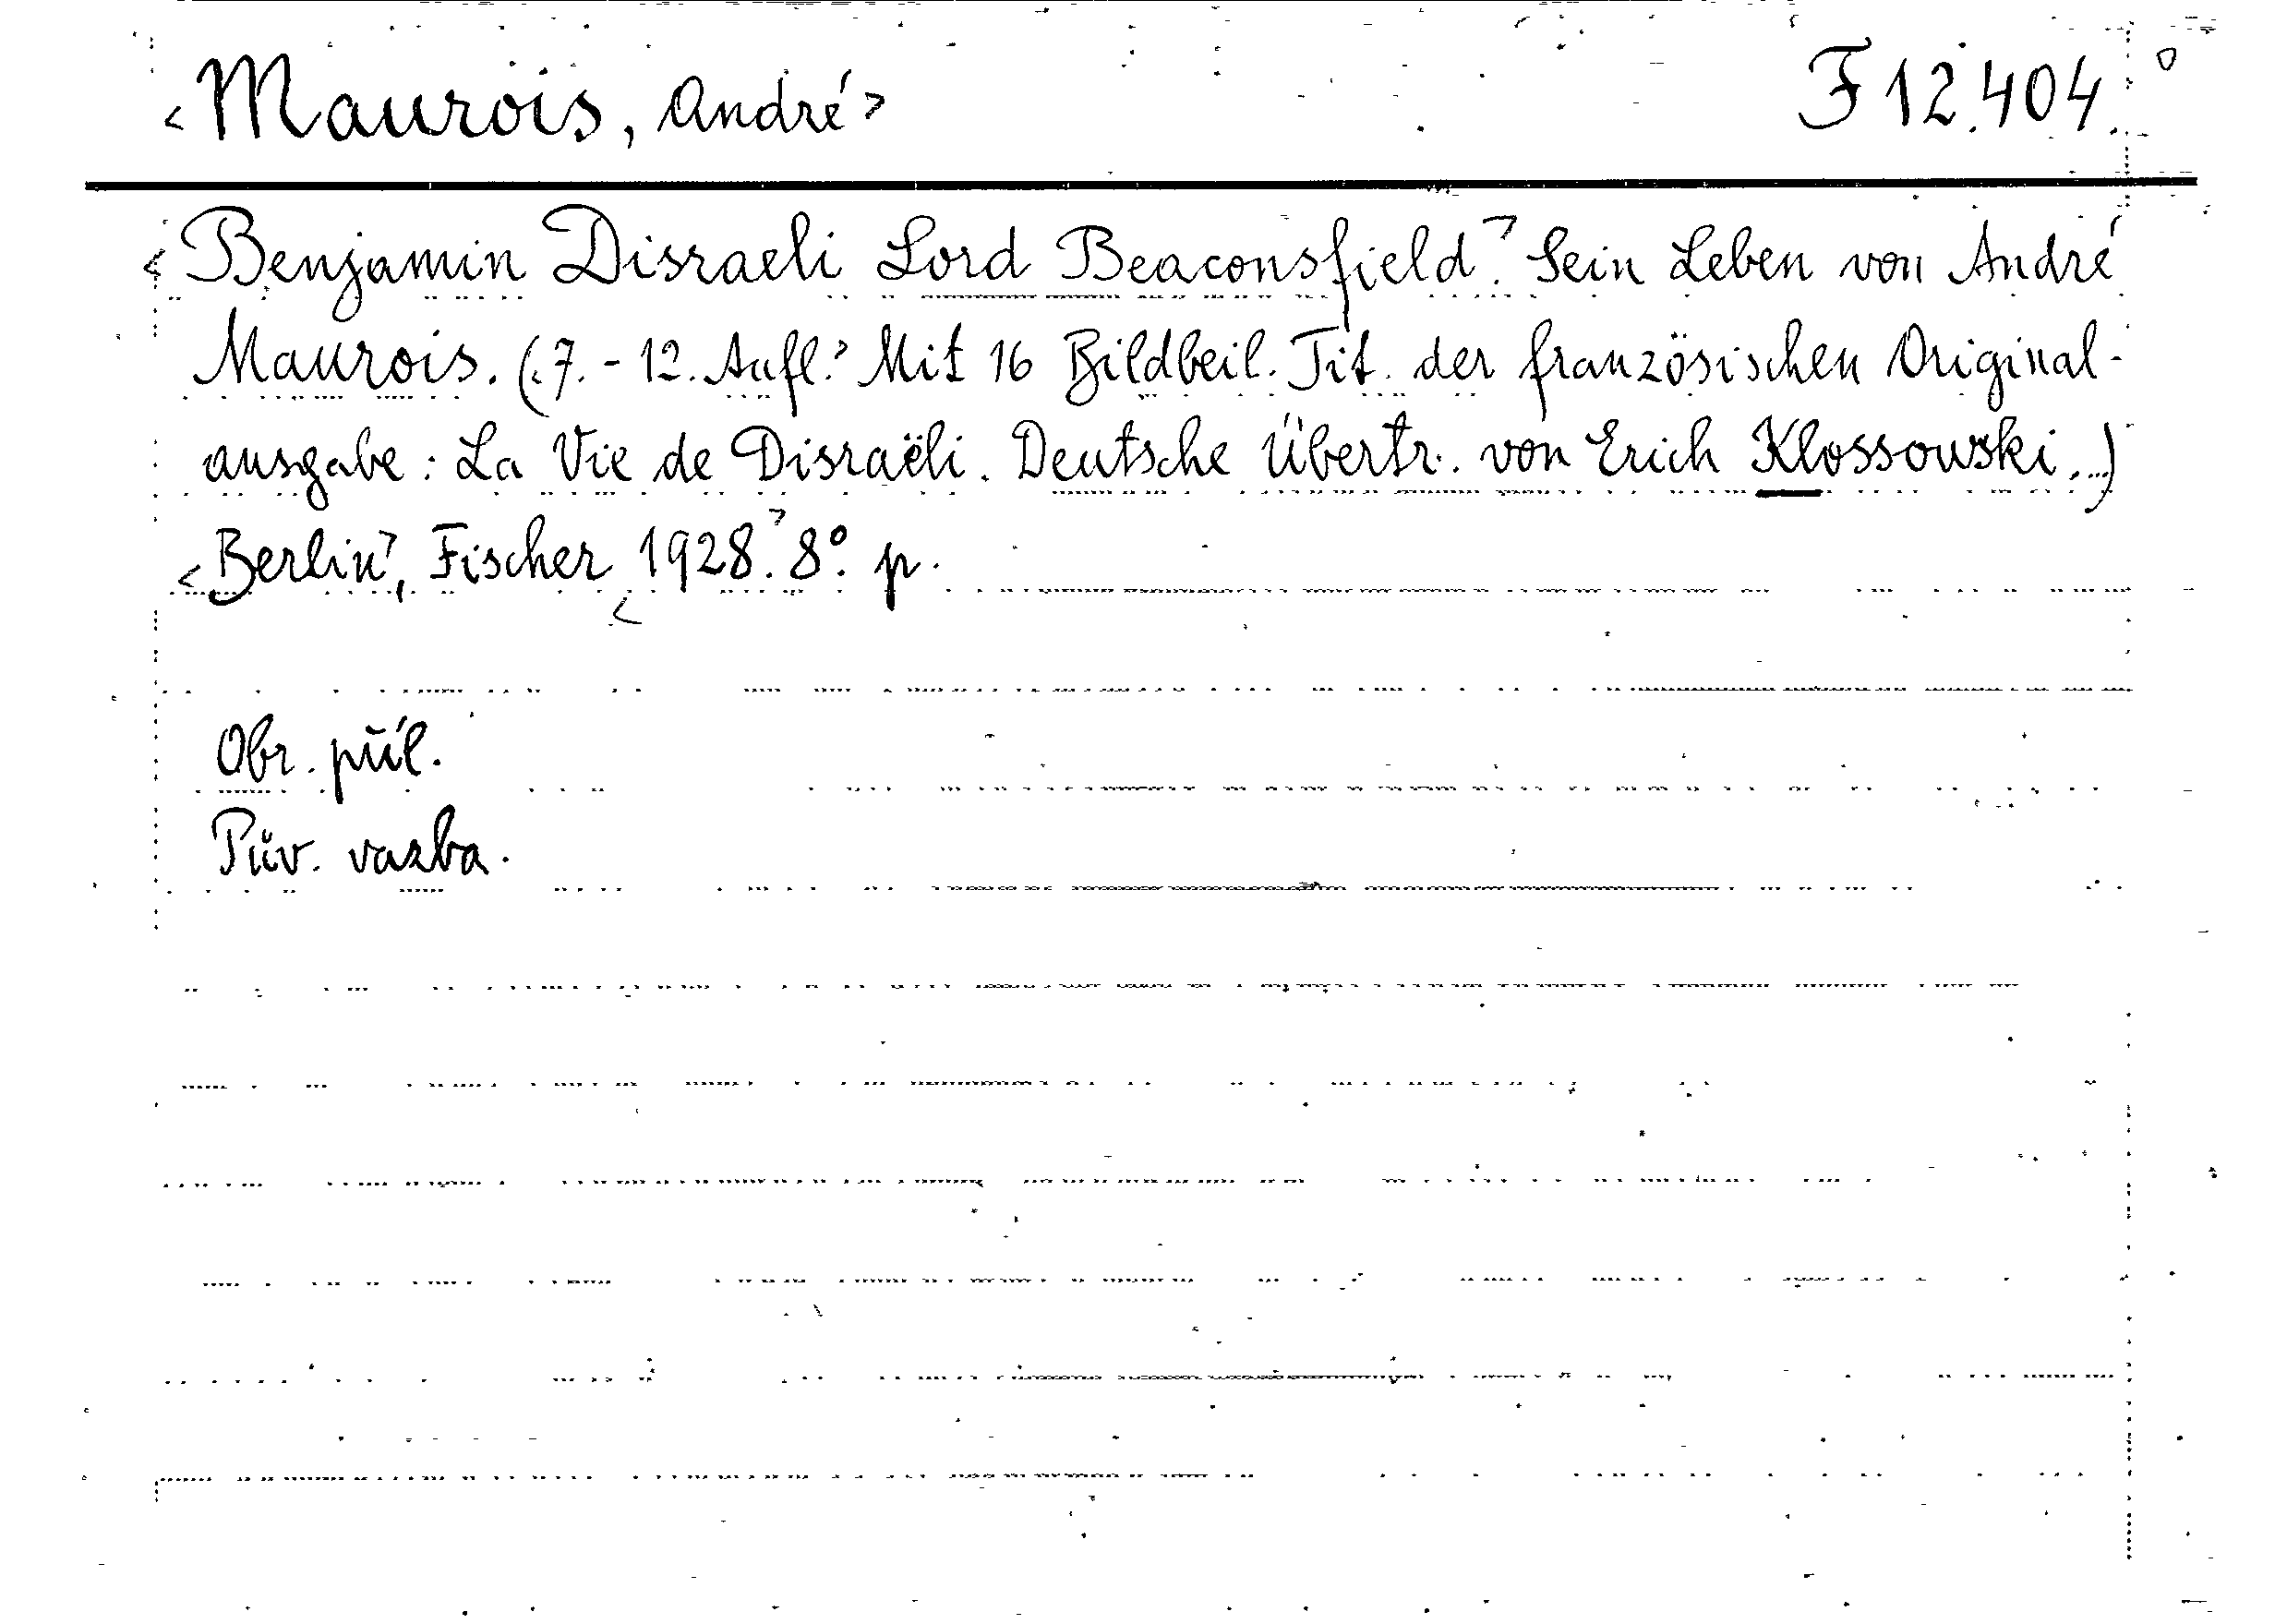 <Maurois, André> F 12.404
<Benjamin Disraeli Lord Beaconsfield.> Sein Leben von André
Maurois. (<7.-12. Aufl.> Mit 16 Bildbeil. Tit. der französischen Original-
ausgabe: La Vie de Disraëli. Deutsche Übertr. von Erich Klossowski...)
<Berlin>, Fischer <1928.> 8°. p.
Obr. příl.
Pův. vazba.